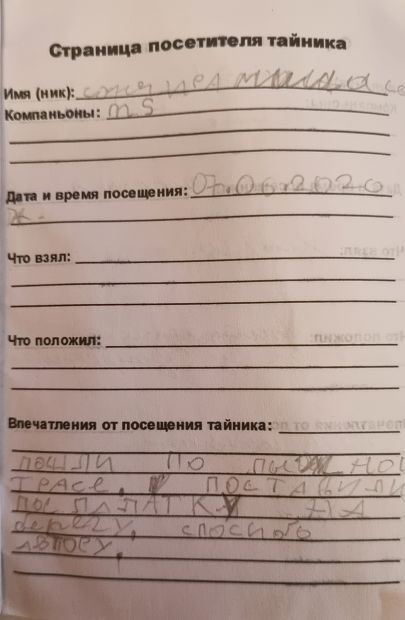 Страница посетителя тайника
Имя (ник):
Компаньоны: MS
Дата и время посещения: 07.06.2020
Ж.
Что взял:
Что положил:
Впечатления от посещения тайника:
пошли по лыжной
трасе, поставили
палатку на
берегу, спосибо
автору,